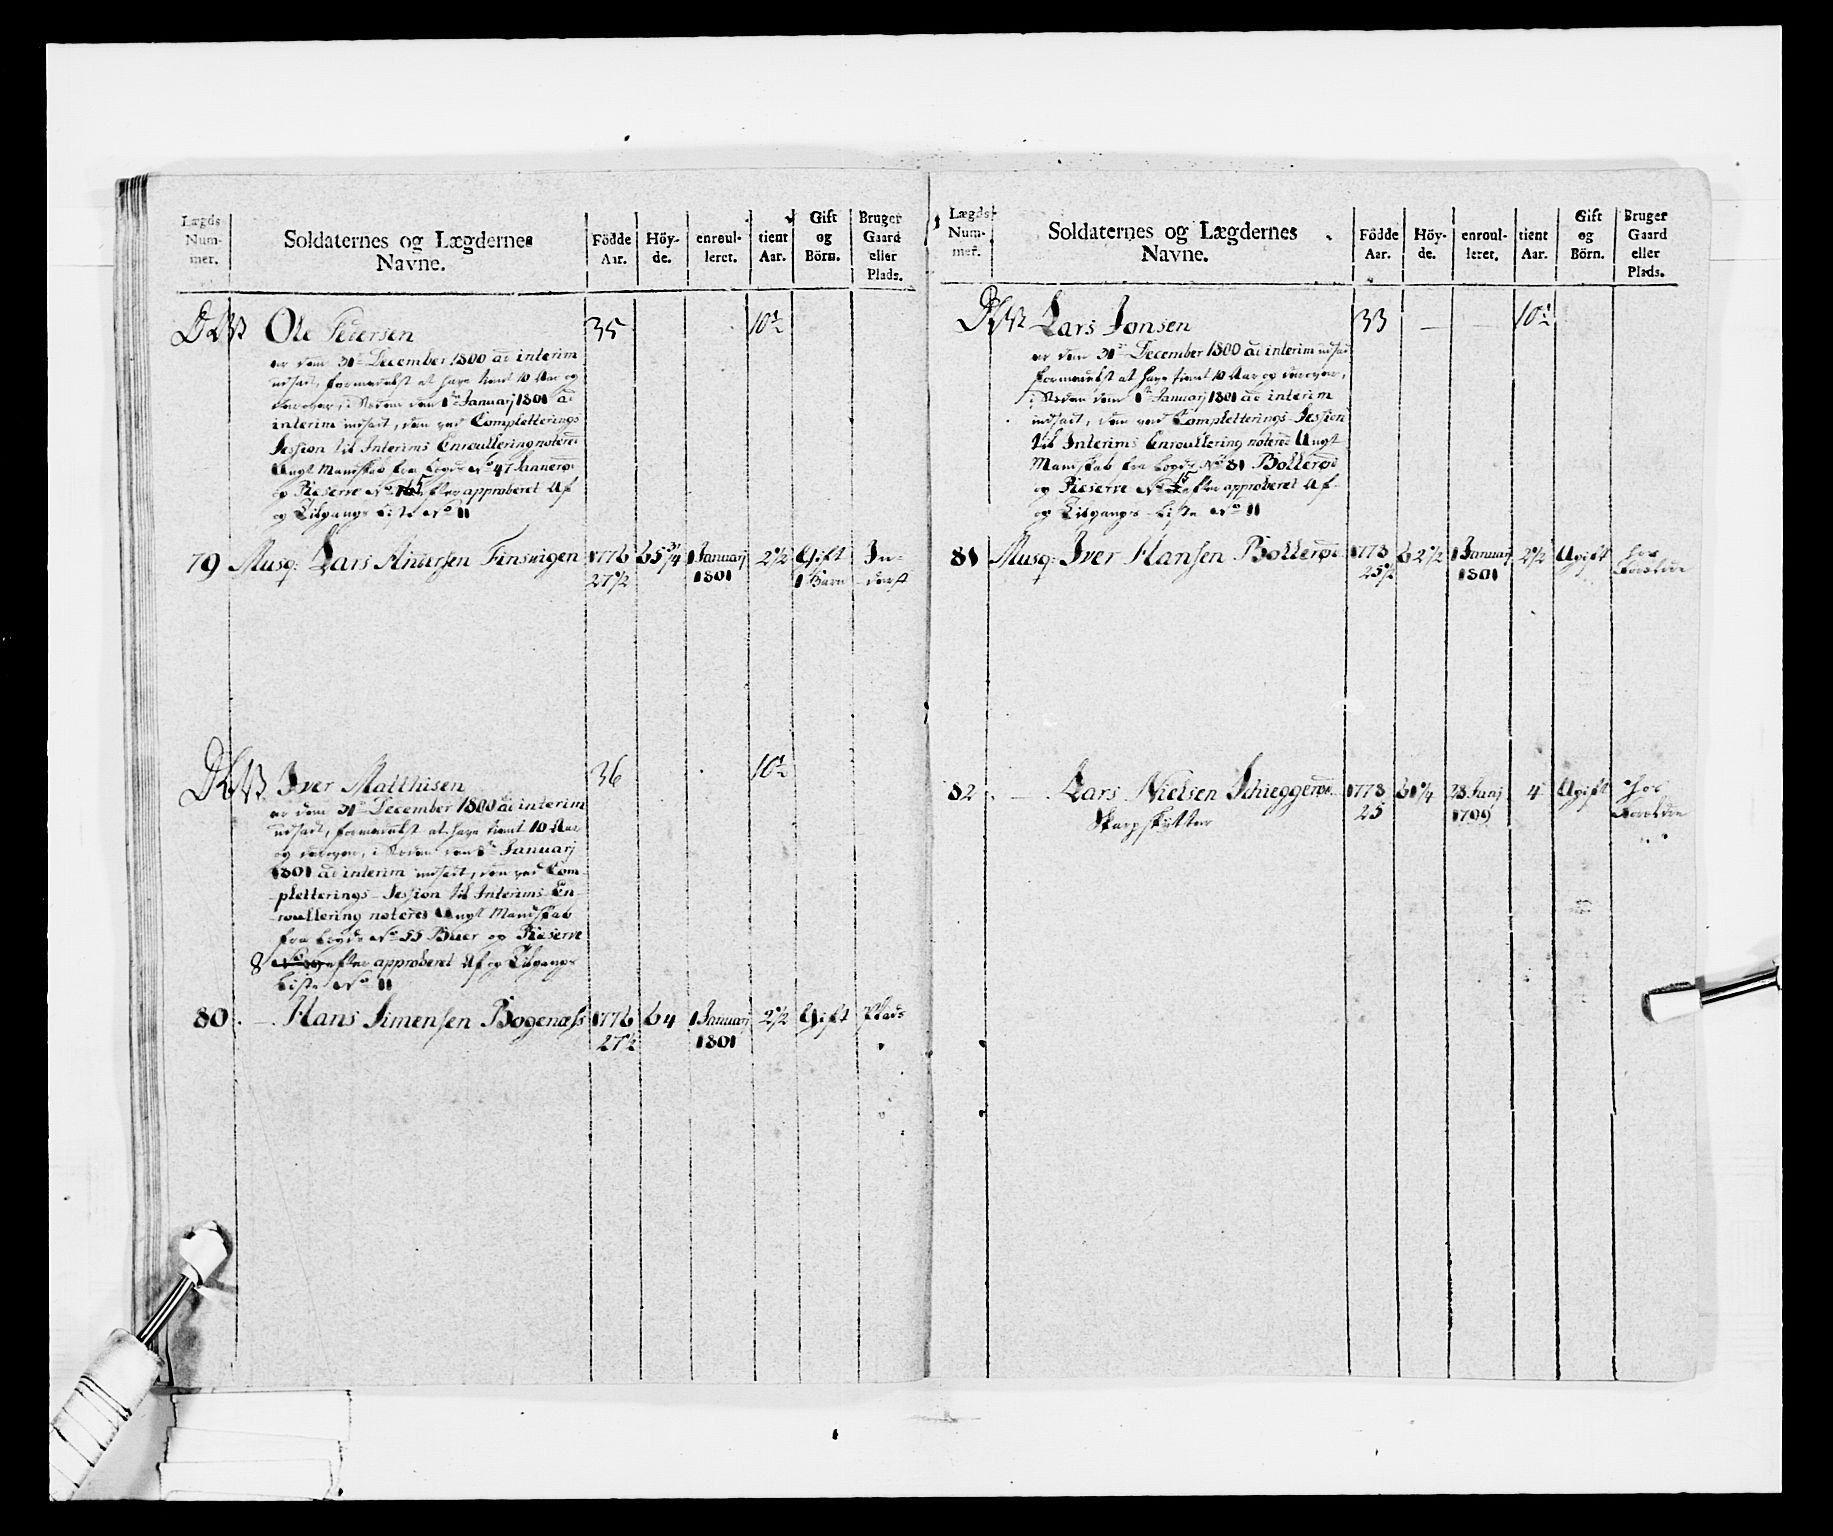 Lægds Num-mer.
Soldaternes og Lægdernes Navne.
Födde Aar.
Höy-de.
enroul-leret.
tient Aar.
Gift og Börn.
Bruger Gaard eller Plads.
Ole Pedersen 35 10½
er dem 31te December 1800 ad interim
udsadt, formedelst at have tient 10 Aar og
derover, i Steden den 1te Januarj 1801 ad
interim indsadt, den ved Completterings
Session til Interims Enroullering noteret
Ungt Mandskab fra Legds No 47
og Reserve No 5 efter approberet Af
og Tilgangs Liste No 11
79 Musq: Lars Andersen Finsvigen 1776 65¾ 1 Januarj 2½ Gift In-
27½ 1801 1 Barn derst
Iver Matthisen 36 10½
er dem 31te December 1800 ad interim
udsadt, formedelst at have tient 10 Aar
og derover, i Steden den 1te Januarj
1801 ad interim indsadt, den ved Com-
pletterings-Session til Interims En-
roullering noteret Ungt Mandskab
fra Legds No 55 Buer og Reserve
8 efter approberet Af og Tilgangs
Liste No 11
80 Hans Simensen Bogenæss 1776 64 1 Januarj 2½ Gift Plads
27½ 1801
Lægds Num-mer.
Soldaternes og Lægdernes Navne.
Födde Aar.
Höy-de.
enroul-leret.
tient Aar.
Gift og Börn.
Bruger Gaard eller Plads.
Lars Jonsen 33 — — 10½
er dem 31te December 1800 ad interim udsadt
formedelst at have tient 10 Aar og derover,
i Steden dem 1te Januarj 1801 ad interim
indsadt, den ved Completterings-Session
til Interims Enroullering noteret Ungt
Mandskab fra Legds No 81 Bollerød
og Reserve No 15 efter approberet Af-
og Tilgangs-Liste No 11
81 Musq: Iver Hansen Bollerød 1773 62½ 1 Januarj 2½ Ugift hos
25½ 1801 Forældre
82 — Lars Nielsen Schieggerød 1773 61¼ 28 Junj 4 Ugift hos
Skarpskytter 25 1799 Forældre